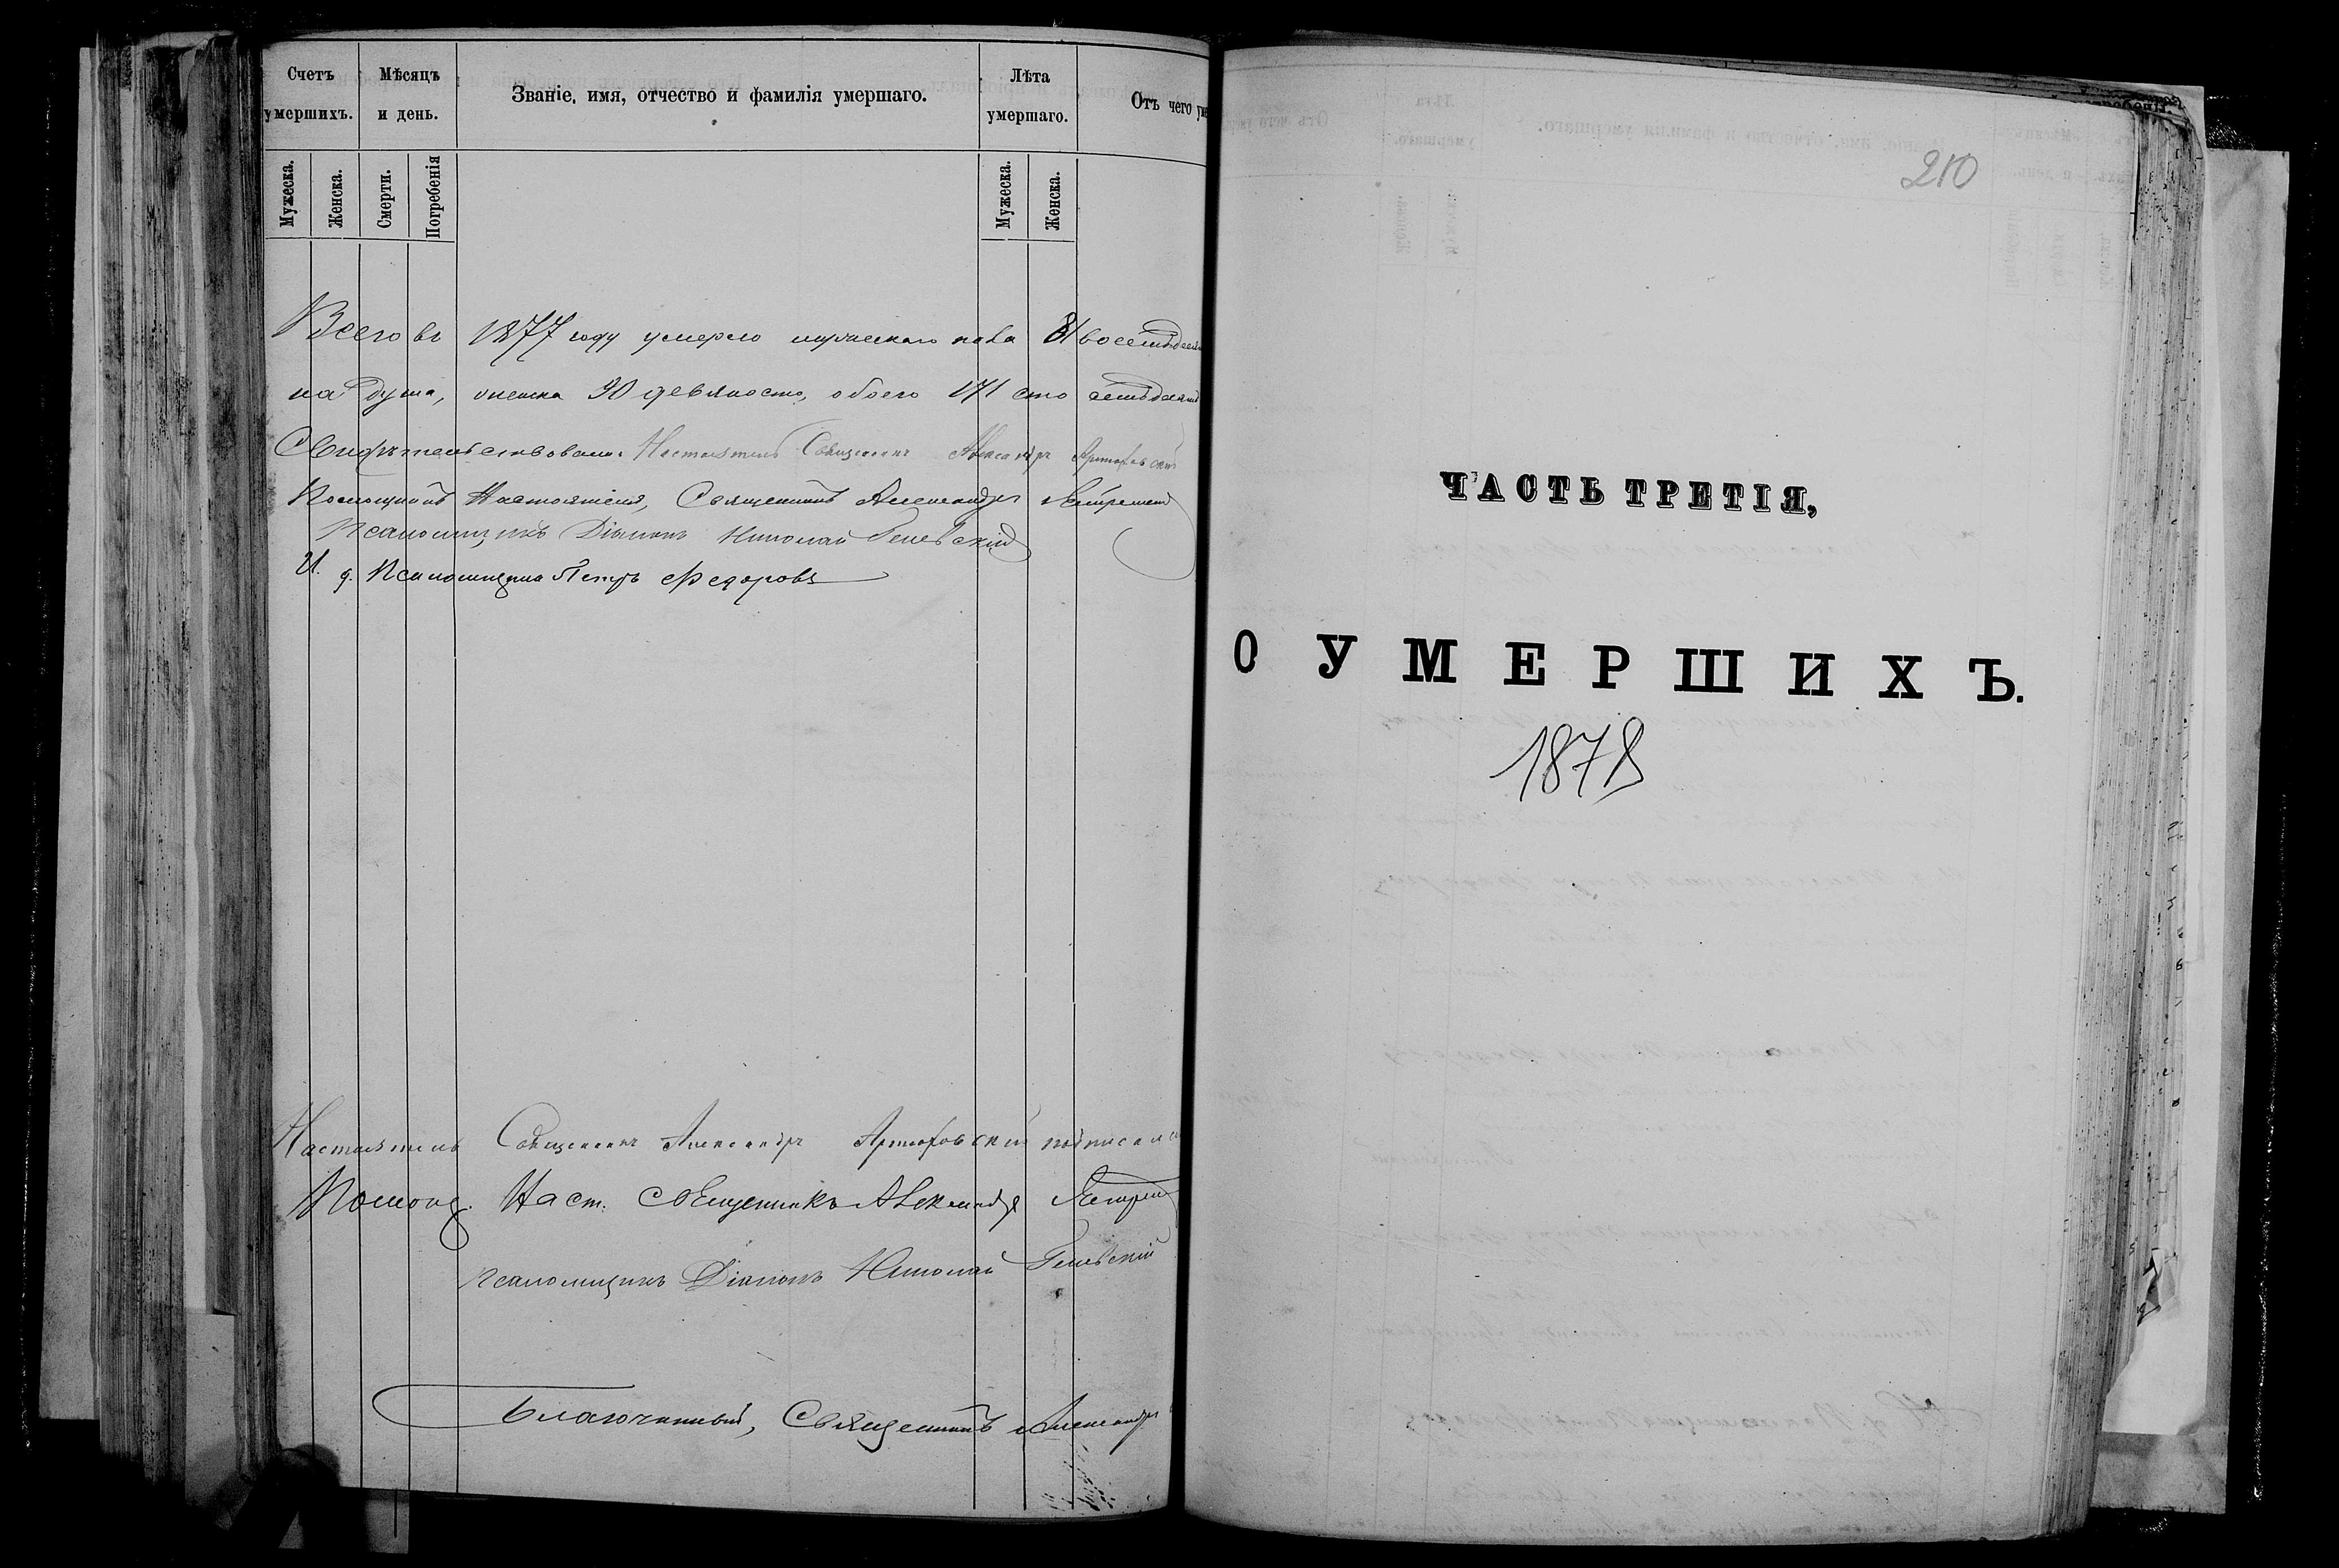 Счетъ умершихъ.
Мѣсяцъ и день.
Званіе, имя, отчество и фамилія умершаго.
Лѣта умершаго.
Отъ чего
Мужеска.
Женска.
Смерти.
Погребенія
Мужеска.
Женска.
Всего въ 1877 году умерло мужескаго пола 81 восемьдесят
на душа, женска 90 девяносто, обоего 171 сто семьдесят
Свидѣтельствовали: Настоятель Священникъ Александръ Артоховскій
Помощникъ Настоятеля, Священникъ Александръ
Псаломщикъ Діаконъ Николай
И. д. Псаломщика Петръ Федоровъ
Настоятель Священникъ Александръ Артоховскій подписал
Помощ. Наст. Священникъ Александр
Псаломщикъ Діаконъ Николай
Благочинный, Священникъ Александръ
210
ЧАСТЬ ТРЕТІЯ,
О УМЕРШИХЪ.
1878